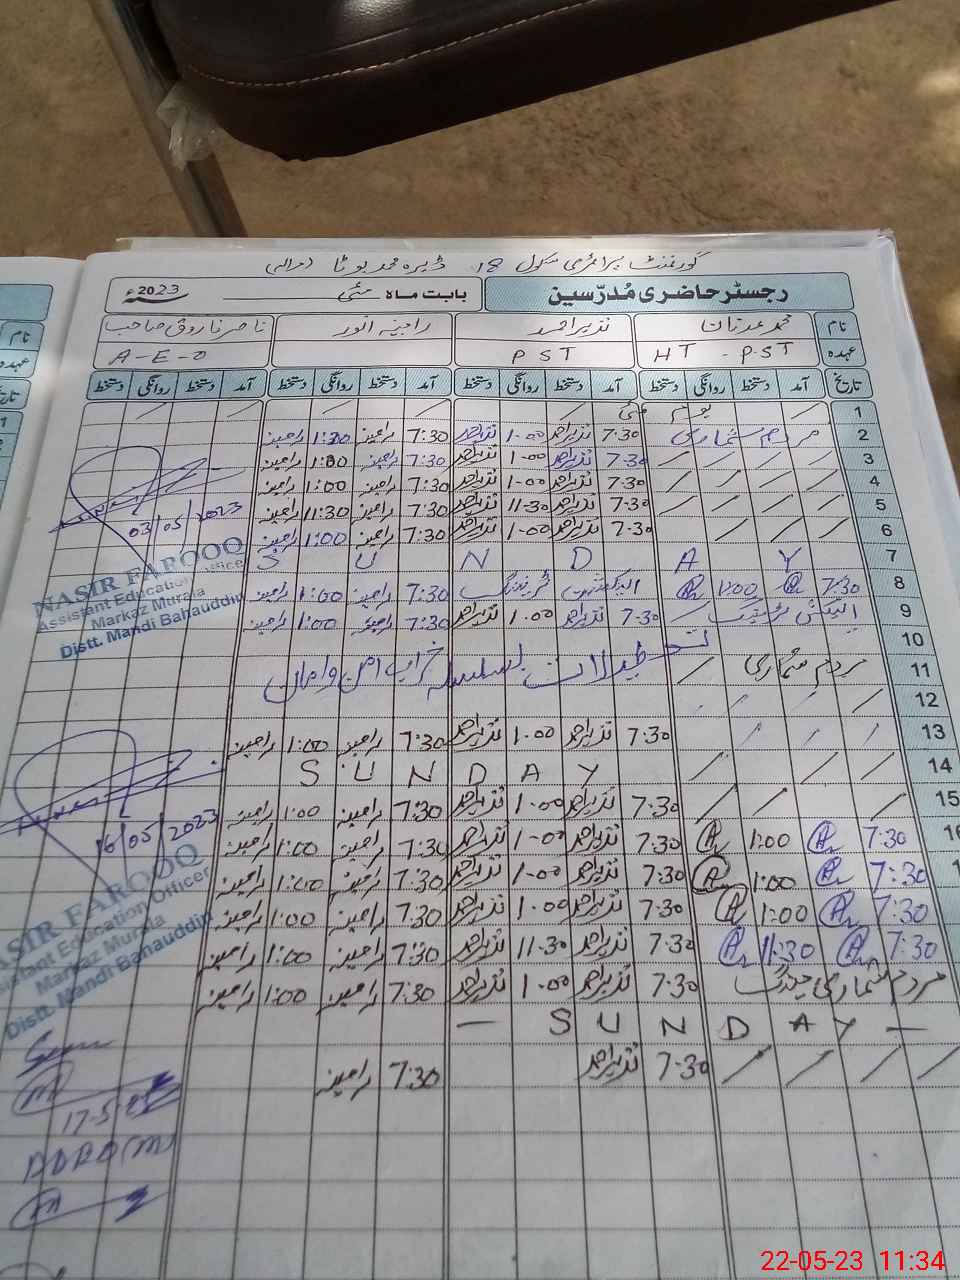 گورنمنٹ پرائمری سکول 18 ڈیرہ محمد بوٹا
رجسٹر حاضری مُدرّسین بابت ماہ مئی 2023ء
نام محمد عدنان نذیر احمد رامینہ انور ناصر فاروق صاحب
عہدہ HT - PST PST A-E-O
تاریخ آمد دستخط روانگی دستخط آمد دستخط روانگی دستخط آمد دستخط روانگی دستخط آمد دستخط روانگی دستخط
1 یوم مئی
2 مردم شماری 7:30 نذیر احمد 1:00 نذیر احمد 7:30 رامینہ 1:30 رامینہ
3 7:30 نذیر احمد 1-00 نذیر احمد 7:30 رامینہ 1:00 رامینہ
4 7:30 نذیر احمد 1-00 نذیر احمد 7:30 رامینہ 1:00 رامینہ
5 7:30 نذیر احمد 11-30 نذیر احمد 7:30 رامینہ 11:30 رامینہ
6 7:30 نذیر احمد 1-00 نذیر احمد 7:30 رامینہ 1:00 رامینہ
03/05/2023
7 S U N D A Y
8 7:30 1:00 الیکشن ٹریننگ 7:30 رامینہ 1:00 رامینہ
9 الیکشن ٹریننگ 7:30 نذیر احمد 1.00 نذیر احمد 7:30 رامینہ 1:00 رامینہ
NASIR FAROOQ
Assistant Education Officer
Markaz Murala
Distt. Mandi Bahauddin
10 تعطیلات بسلسلہ خراب امن و امان
11 مردم شماری
12
13 7:30 نذیر احمد 1.00 نذیر احمد 7:30 رامینہ 1:00 رامینہ
14 S U N D A Y
15 7:30 نذیر احمد 1.00 نذیر احمد 7:30 رامینہ 1:00 رامینہ
16/05/2023
16 7:30 1:00 7:30 نذیر احمد 1-00 نذیر احمد 7:30 رامینہ 1:00 رامینہ
1 7:30 1:00 7:30 نذیر احمد 1-00 نذیر احمد 7:30 رامینہ 1:00 رامینہ
7:30 1:00 7:30 نذیر احمد 1.00 نذیر احمد 7:30 رامینہ 1:00 رامینہ
7:30 11:30 7:30 نذیر احمد 11.30 نذیر احمد 7:30 رامینہ 1:00 رامینہ
مردم شماری 7:30 نذیر احمد 1.00 نذیر احمد 7:30 رامینہ 1:00 رامینہ
ASIR FAROOQ
sistant Education Officer
Markaz Murala
Distt. Mandi Bahauddin
— S U N D A Y —
7:30 نذیر احمد 7:30 رامینہ
17-5-
22-05-23 11:34